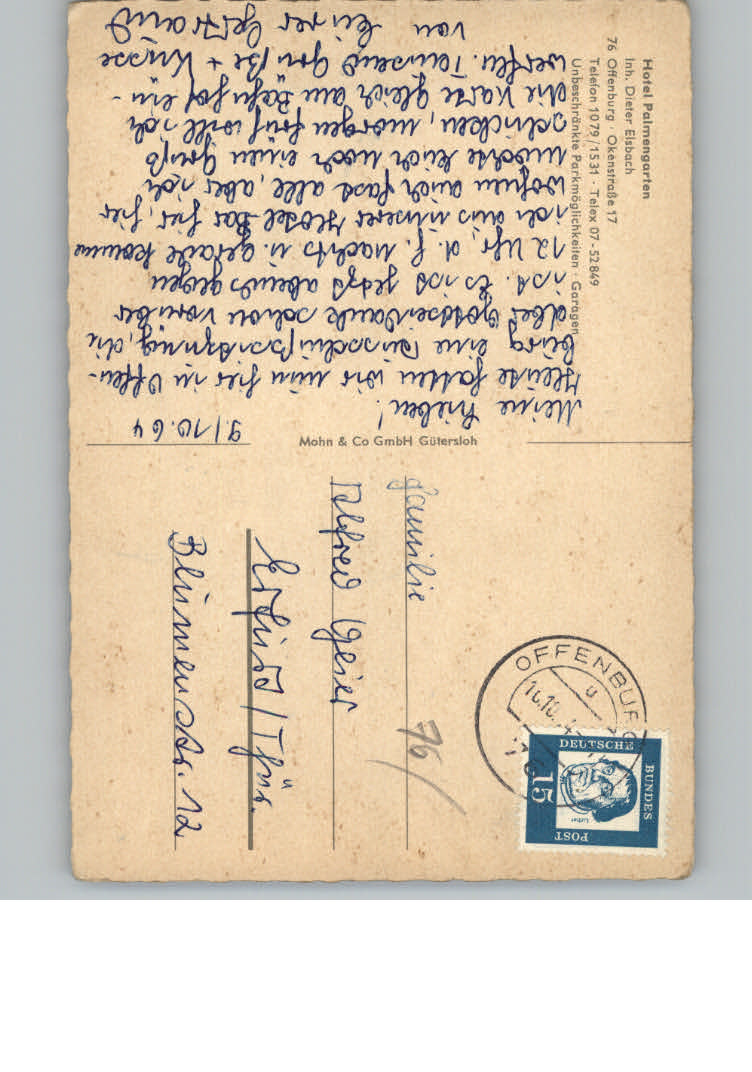 Hotel Palmengarten
Inh. Dieter Elsbach
76 Offenburg · Okenstraße 17
Telefon 1079/1531 · Telex 07-52849
Unbeschränkte Parkmöglichkeiten · Garagen
9/10.64
Meine Lieben!
Heute hatten wir nun hier in Offen-
burg eine Ausschußsitzung, die
aber Gottseidank schon vorüber
ist. Es ist jetzt abends gegen
12 Uhr, d. h. nachts u. gerade komme
ich aus unserer Hotel-Bar hier, hier
wohnen auch fast alle, aber ich
möchte Euch noch einen Gruß
schicken, morgen früh will ich
die Karte gleich am Bahnhof ein-
werfen. Tausend Grüße + Küsse
von Eurer Gertraud
Mohn & Co GmbH Gütersloh
Familie
Alfred Geier
Erfurt / Thür.
Blumenstr. 12
76/
OFFENBURG
u
DEUTSCHE
BUNDES
POST
15
Luther